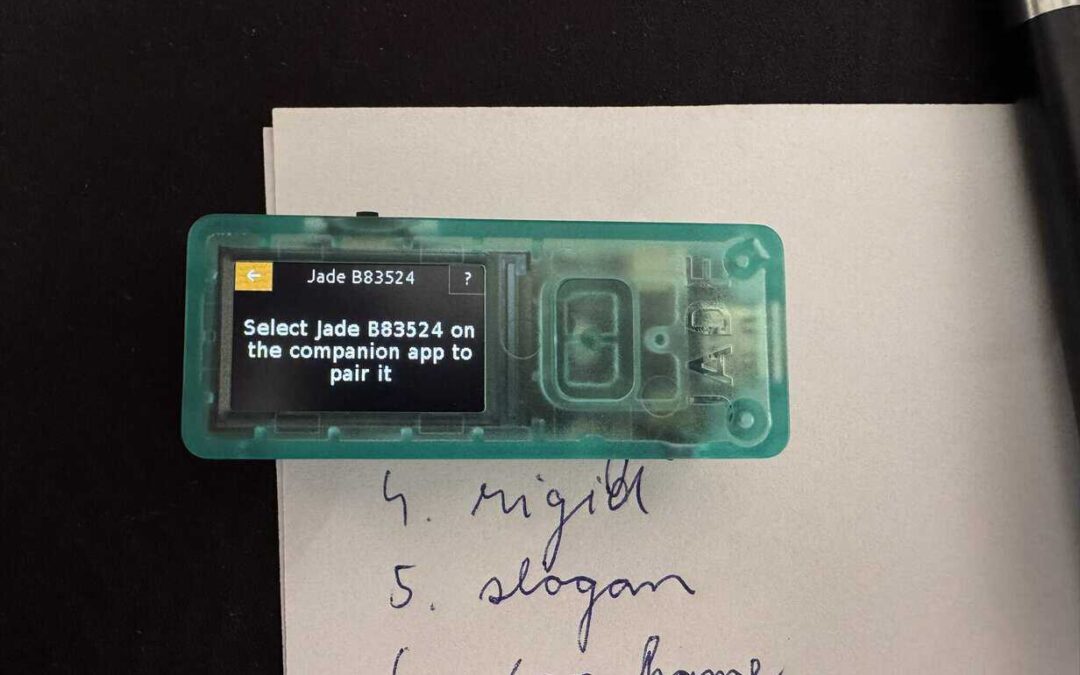 ← Jade B83524 ?
Select Jade B83524 on
the companion app to
pair it
JADE
4. rigid
5. slogan